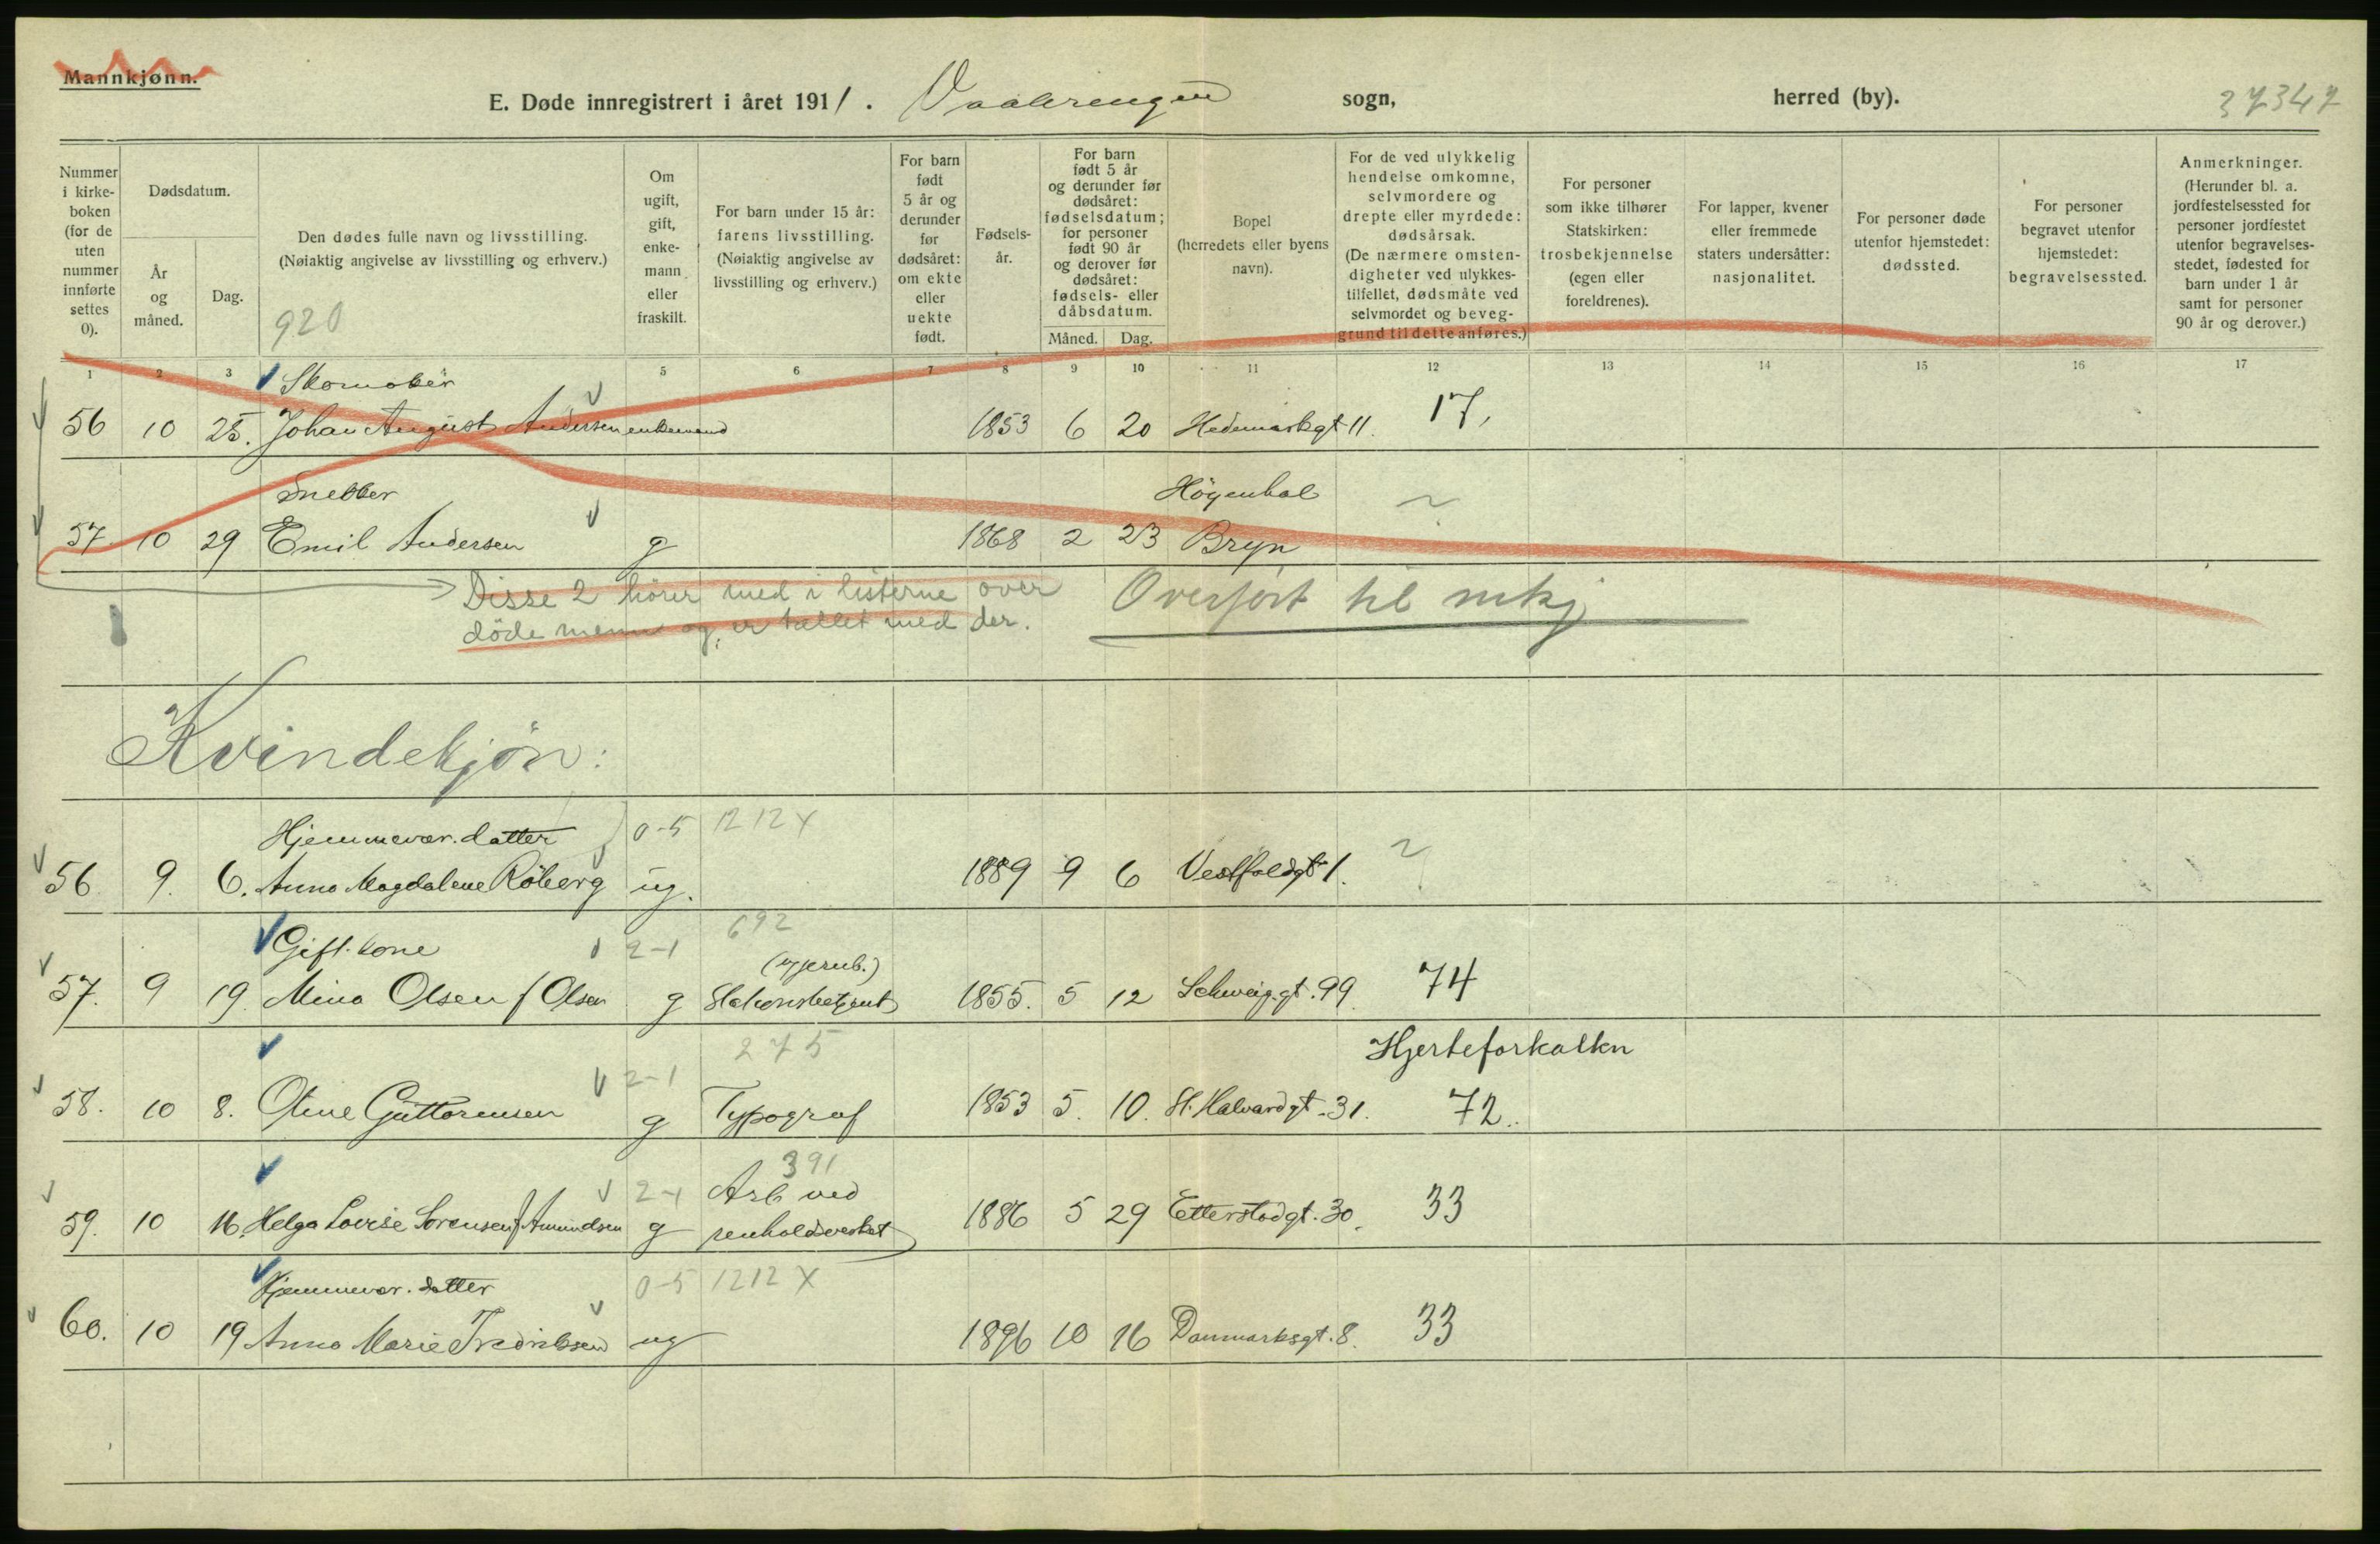 Mannkjønn.
E. Døde innregistrert i året 1911. Vaalerengen sogn, herred (by). 37347
Nummer i kirke-boken (for de uten nummer innførte settes 0).
Dødsdatum.
År og måned.
Dag.
Den dødes fulle navn og livsstilling.
(Nøiaktig angivelse av livsstilling og erhverv.)
920
Om ugift, gift, enke-mann eller fraskilt.
For barn under 15 år: farens livsstilling. (Nøiaktig angivelse av livsstilling og erhverv.)
For barn født 5 år og derunder før dødsåret: om ekte eller uekte født.
Fødsels-år.
For barn født 5 år og derunder før dødsåret: fødselsdatum; for personer født 90 år og derover før dødsåret: fødsels- eller dåbsdatum.
Måned. Dag.
Bopel (herredets eller byens navn).
For de ved ulykkelig hendelse omkomne, selvmordere og drepte eller myrdede: dødsårsak. (De nærmere omsten-digheter ved ulykkes-tilfellet, dødsmåte ved selvmordet og beveg-grund til dette anføres.)
For personer som ikke tilhører Statskirken: trosbekjennelse (egen eller foreldrenes).
For lapper, kvener eller fremmede staters undersåtter: nasjonalitet.
For personer døde utenfor hjemstedet: dødssted.
For personer begravet utenfor hjemstedet: begravelsessted.
Anmerkninger. (Herunder bl. a. jordfestelsessted for personer jordfestet utenfor begravelses-stedet, fødested for barn under 1 år samt for personer 90 år og derover.)
1 2 3 5 6 7 8 9 10 11 12 13 14 15 16 17
Skomaker
56 10 25. Johan August Andersen enkemand 1853 6 20 Hedemarksgt 11. 17,
Snekker Høyenhal
57. 10 29 Emil Andersen g 1868 2 23 Bryn
Disse 2 hører med i listerne over
døde menn og er tallet med der.
Overført til mkj
Kvindekjøn:
Hjemmevær. datter 0-5 1212 X
56 9. 6. Anna Magdalene Röberg ug. 1889 9 6 Vestfoldgt 1.
Gift. kone 2-1 692
57. 9 19. Mina Olsen f Olsen g Stationsbetjent 1855. 5 12 Schweig.gt. 99. 74
2-1 275 Hjerteforkalkn
58. 10 8. Oline Guttormsen g Typograf 1853 5. 10. St. Halvardgt. 31. 72.
2-1 391 Arb ved
59. 10 16. Helga Lovise Sorensen f Amundsen g renholdsverket 1886 5 29 Etterstadgt. 30. 33
Hjemmevær. datter 0-5 1212 X
60. 10 19 Anna Marie Fredriksen ug 1896 10 16 Danmarksgt. 8. 33